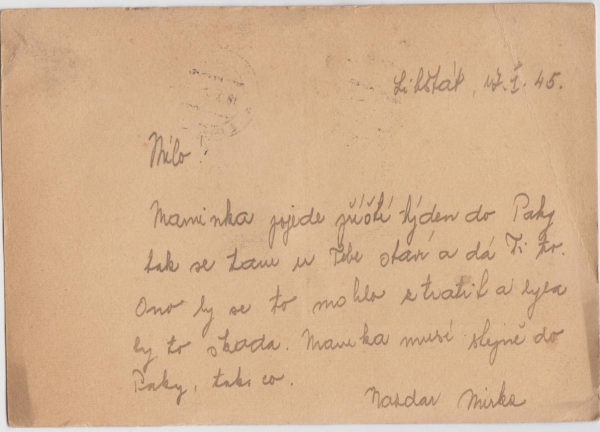 Libštát, 17.I.45.
Mílo!
Maminka pojede příští týden do Paky
tak se tam u Tebe staví a dá Ti to.
Ono by se to mohlo ztratit a byla
by to škoda. Maminka musí stejně do
Paky, tak co.
Nazdar Mirka